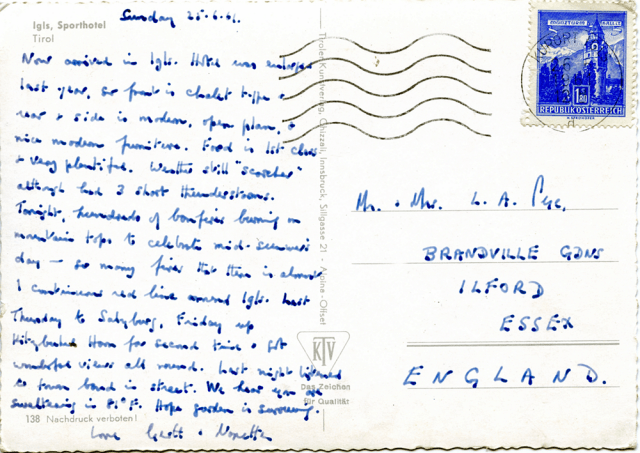 Igls, Sporthotel
Tirol
Sunday 25.6.61.
Now arrived in Igls. Hotel was enlarged
last year, so front is chalet type &
rear & side is modern, open plan, &
nice modern furniture. Food is 1st class
& very plentiful. Weather still "scorcher"
although had 3 short thunderstorms.
Tonight, hundreds of bonfires burning on
mountain tops to celebrate mid-summer's
day — so many fires that there is almost
1 continuous red line around Igls. Last
Thursday to Salzburg, Friday up
Kitzbuhel Horn for second time & got
wonderful views all round. Last night listened
to town band in street. We hear you are
sweltering in °F. Hope garden is surviving.
Love Geoff &
138 Nachdruck verboten!
Tiroler Kunstverlag Chizzali, Innsbruck, Sillgasse 21 · Alpine-Offset
KTV
Das Zeichen
für Qualität
1.80
REPUBLIK ÖSTERREICH
Mr. & Mrs. L. A. Pye,
BRANDVILLE GDNS
ILFORD
ESSEX
ENGLAND.